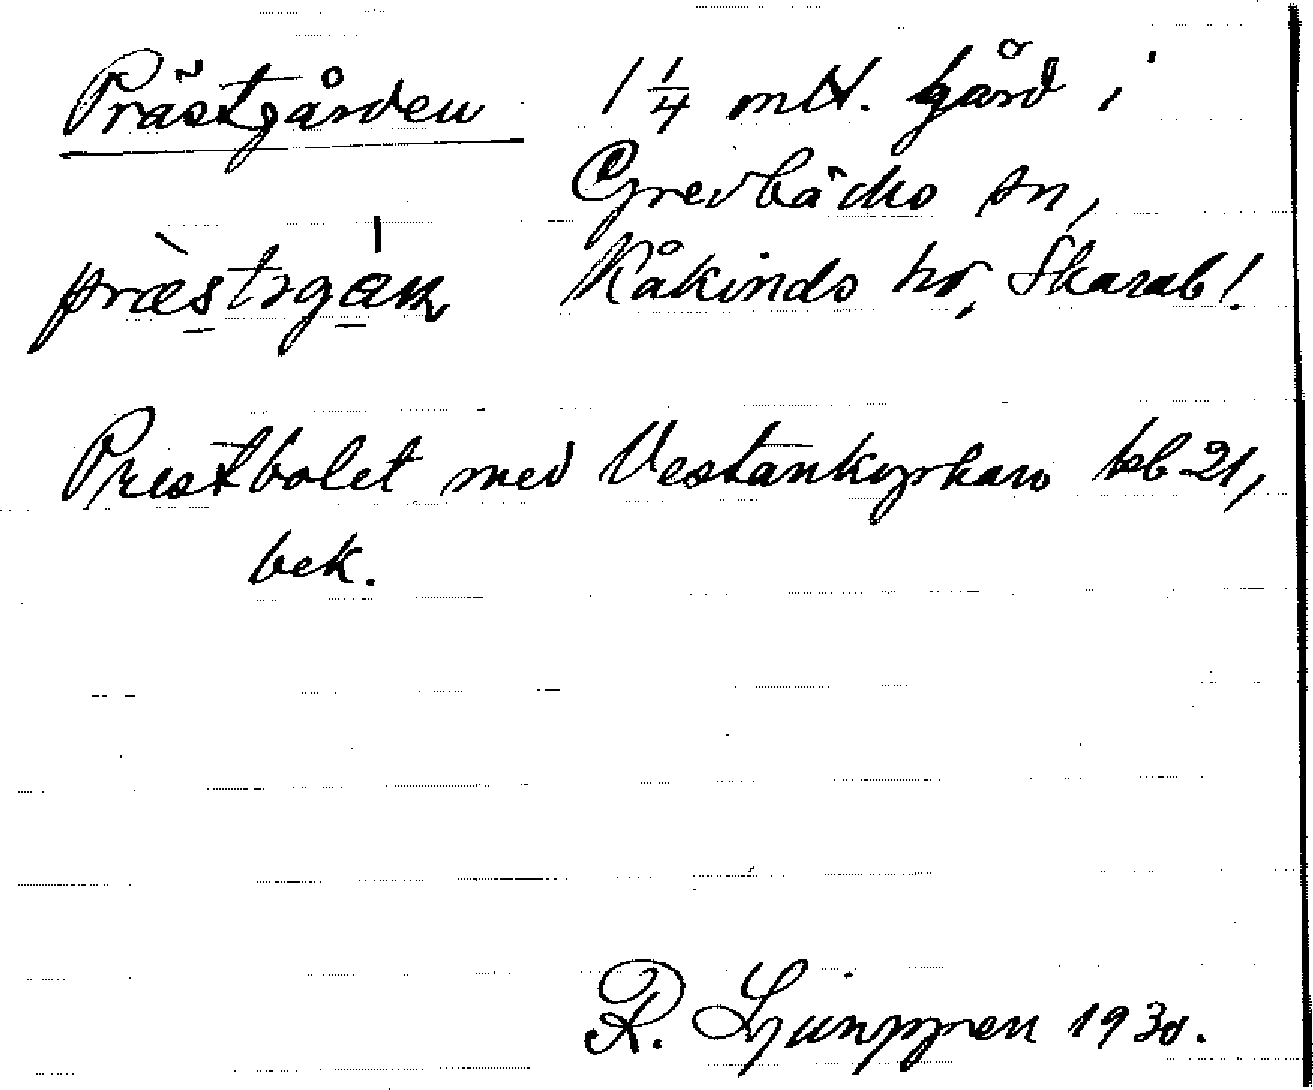 Prästgården 1 1/4 mtl. gård i
Grevbäcks sn,
Kåkinds hd, Skarab l.
Prestbolet med Vestankyrkan kb 21,
bek.
R. Ljunggren 1930.